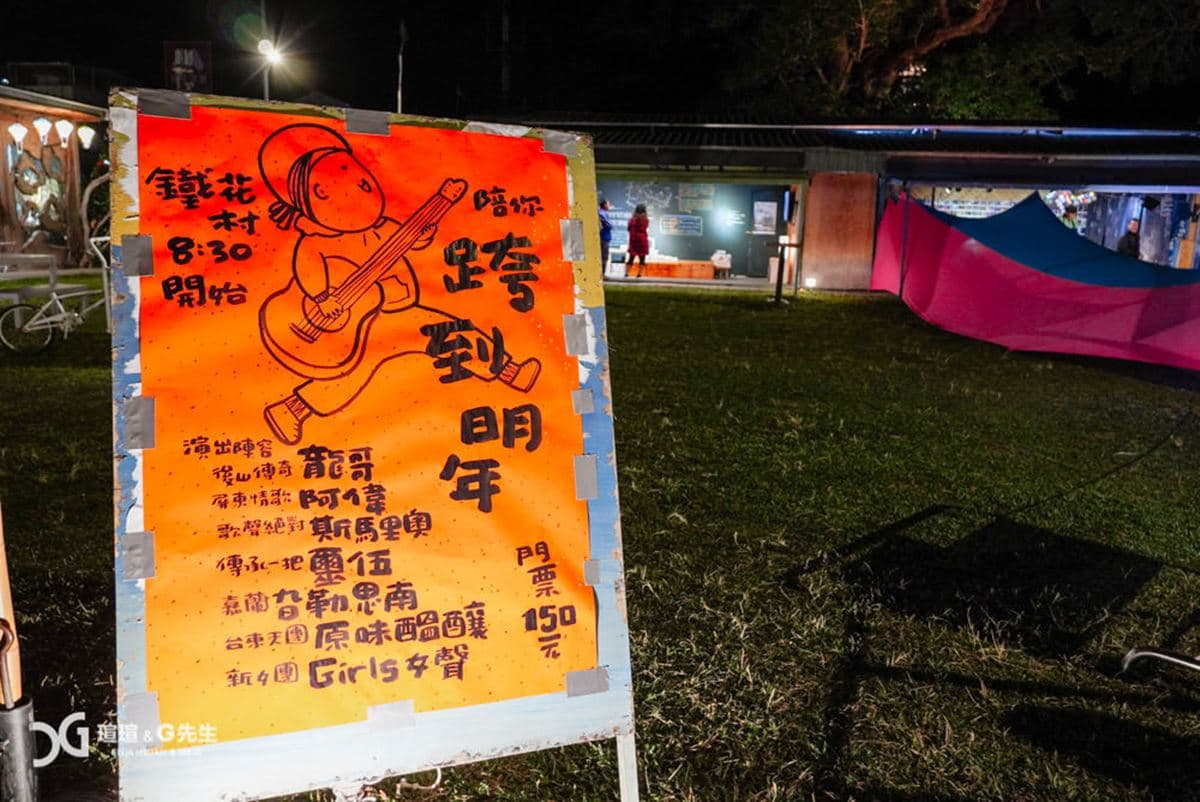 鐵花
村
8:30
開始
陪你
跨
到
明
年
演出陣容
後山傳奇 龍哥
屏東情歌 阿偉
歌聲絕對 斯馬里奧
傳承一把 璽伍
嘉蘭 旮勒思南
台東天團 原味醞釀
新女團 Girls女聲
門
票
150
元
瑄瑄 & G先生